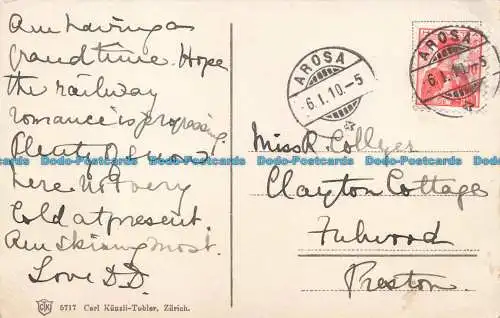 Am having a
grand time. Hope
the railway
romance is progressing.
Plenty of snow
here. Not very
cold at present.
Am skiing most.
Love D.D.
CK 5717 Carl Künzli-Tobler, Zürich.
AROSA
6.I.10.-5
AROSA
6.I.10.-5
Miss R. Collyer
Clayton Cottage
Fulwood
Preston.
Dodo-Postcards Dodo-Postcards Dodo-Postcards Dodo-Postcards Dodo-Postcards Dodo-Postcards